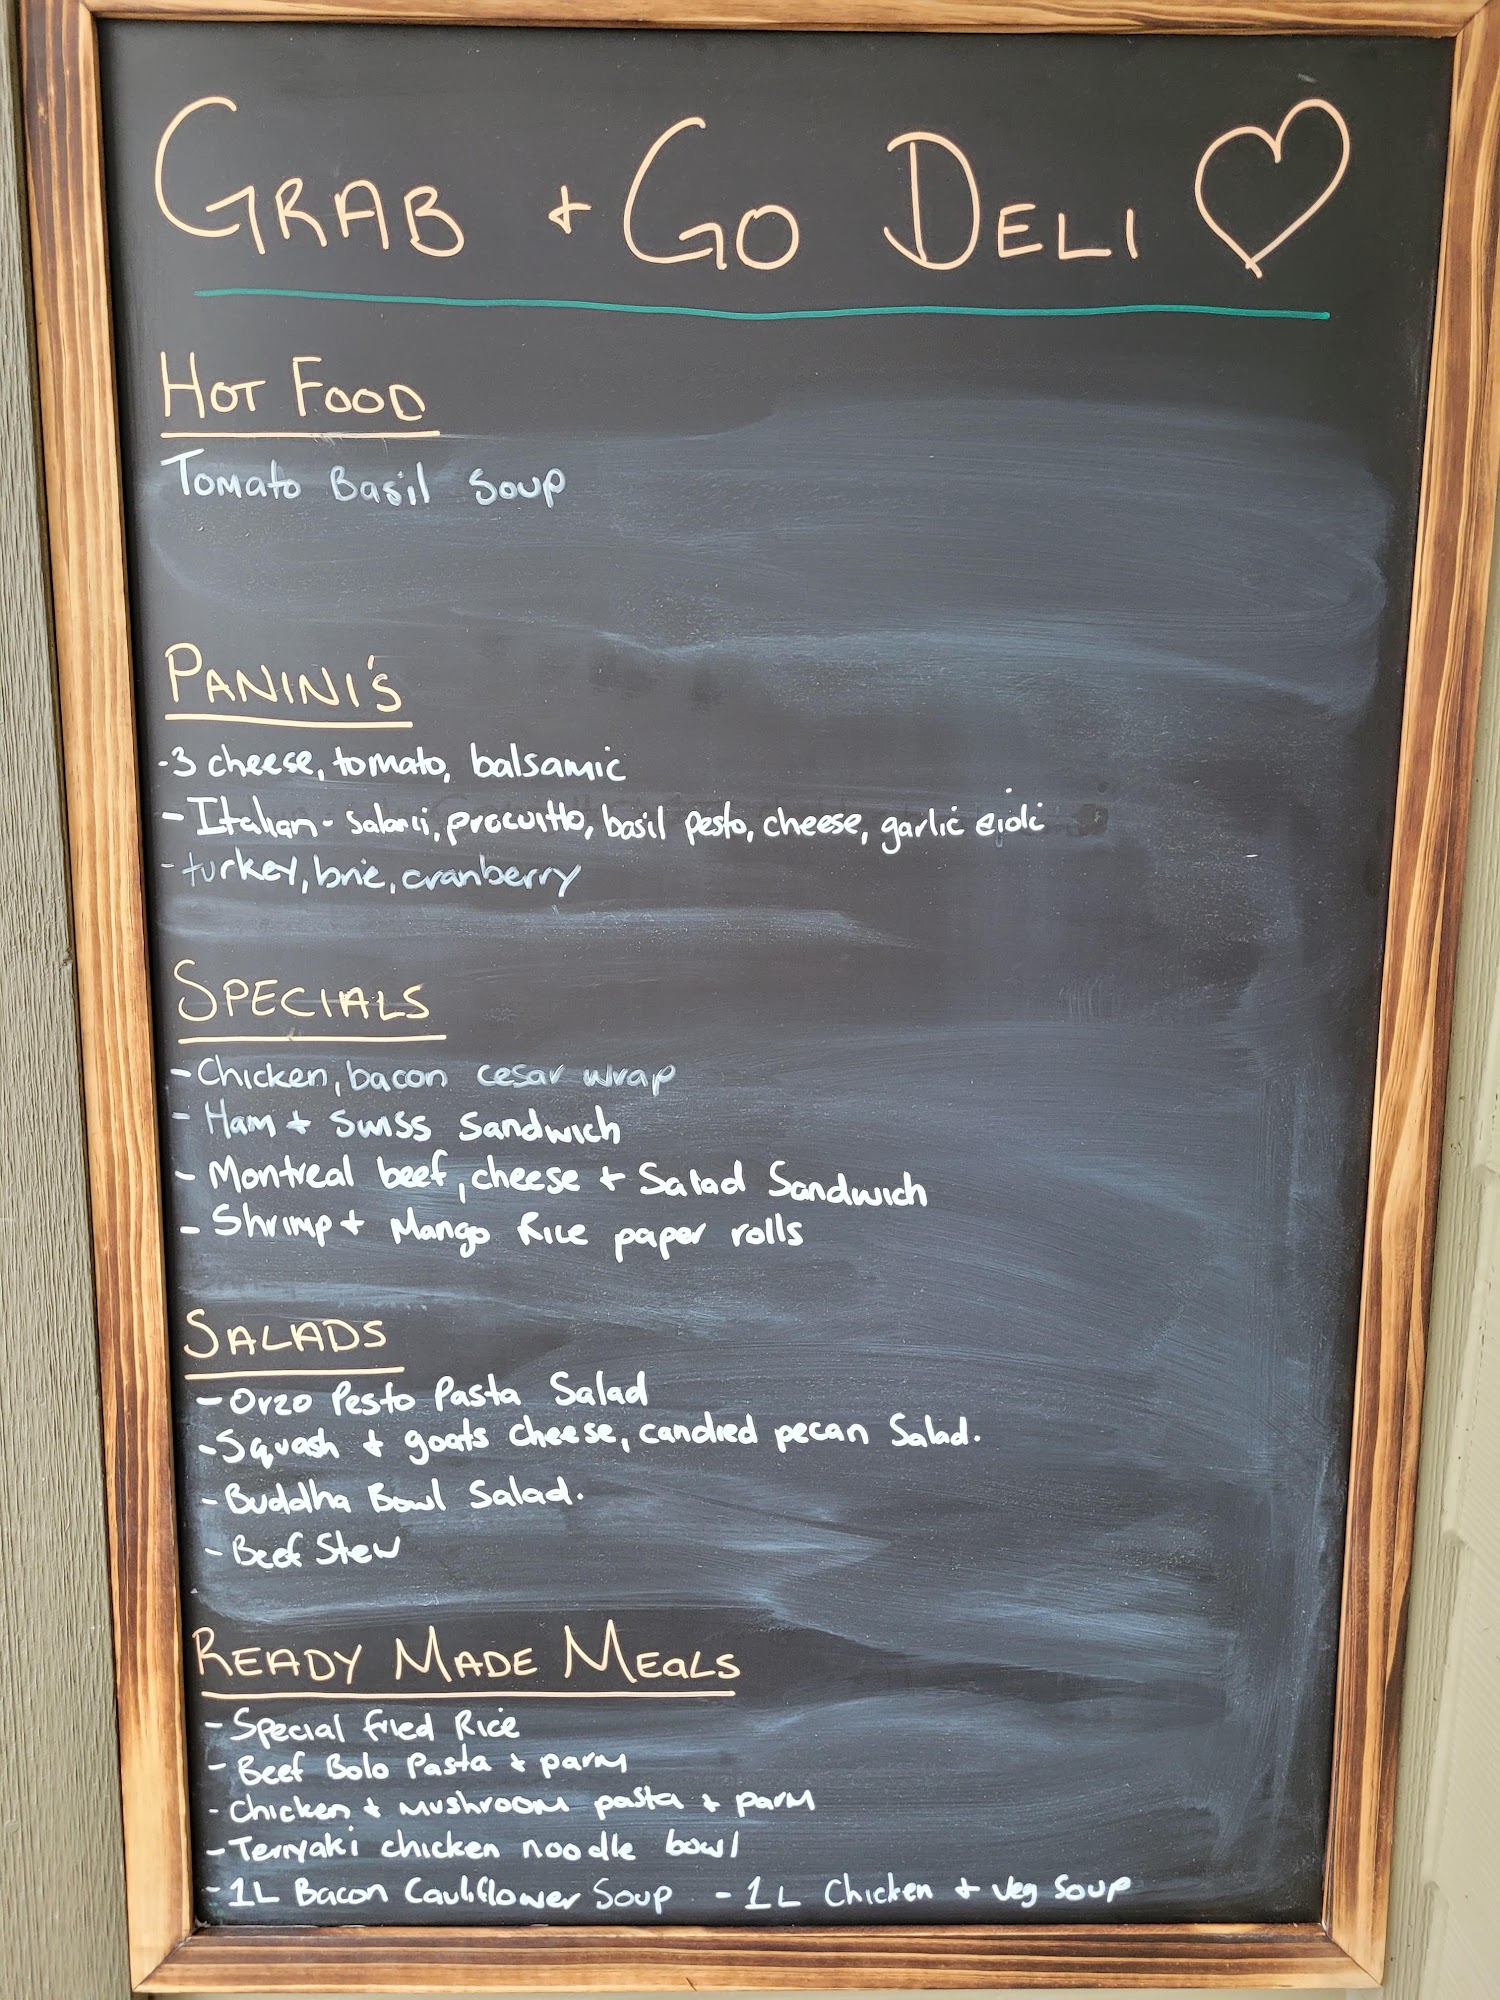 GRAB + GO DELI
HOT FOOD
Tomato Basil Soup
PANINI'S
-3 cheese, tomato, balsamic
- Italian - Salami, procuitto, basil pesto, cheese, garlic eioli
- turkey, brie, cranberry
SPECIALS
- Chicken, bacon cesar wrap
- Ham + Swiss Sandwich
- Montreal beef, cheese + Salad Sandwich
- Shrimp + Mango Rice paper rolls
SALADS
- Orzo Pesto Pasta Salad
- Squash + goats cheese, candied pecan Salad.
- Buddha Bowl Salad.
- Beef Stew
READY MADE MEALS
- Special Fried Rice
- Beef Bolo Pasta + parm
- Chicken + mushroom pasta + parm
- Terryaki chicken noodle bowl
- 1L Bacon Cauliflower Soup - 1L Chicken + veg Soup